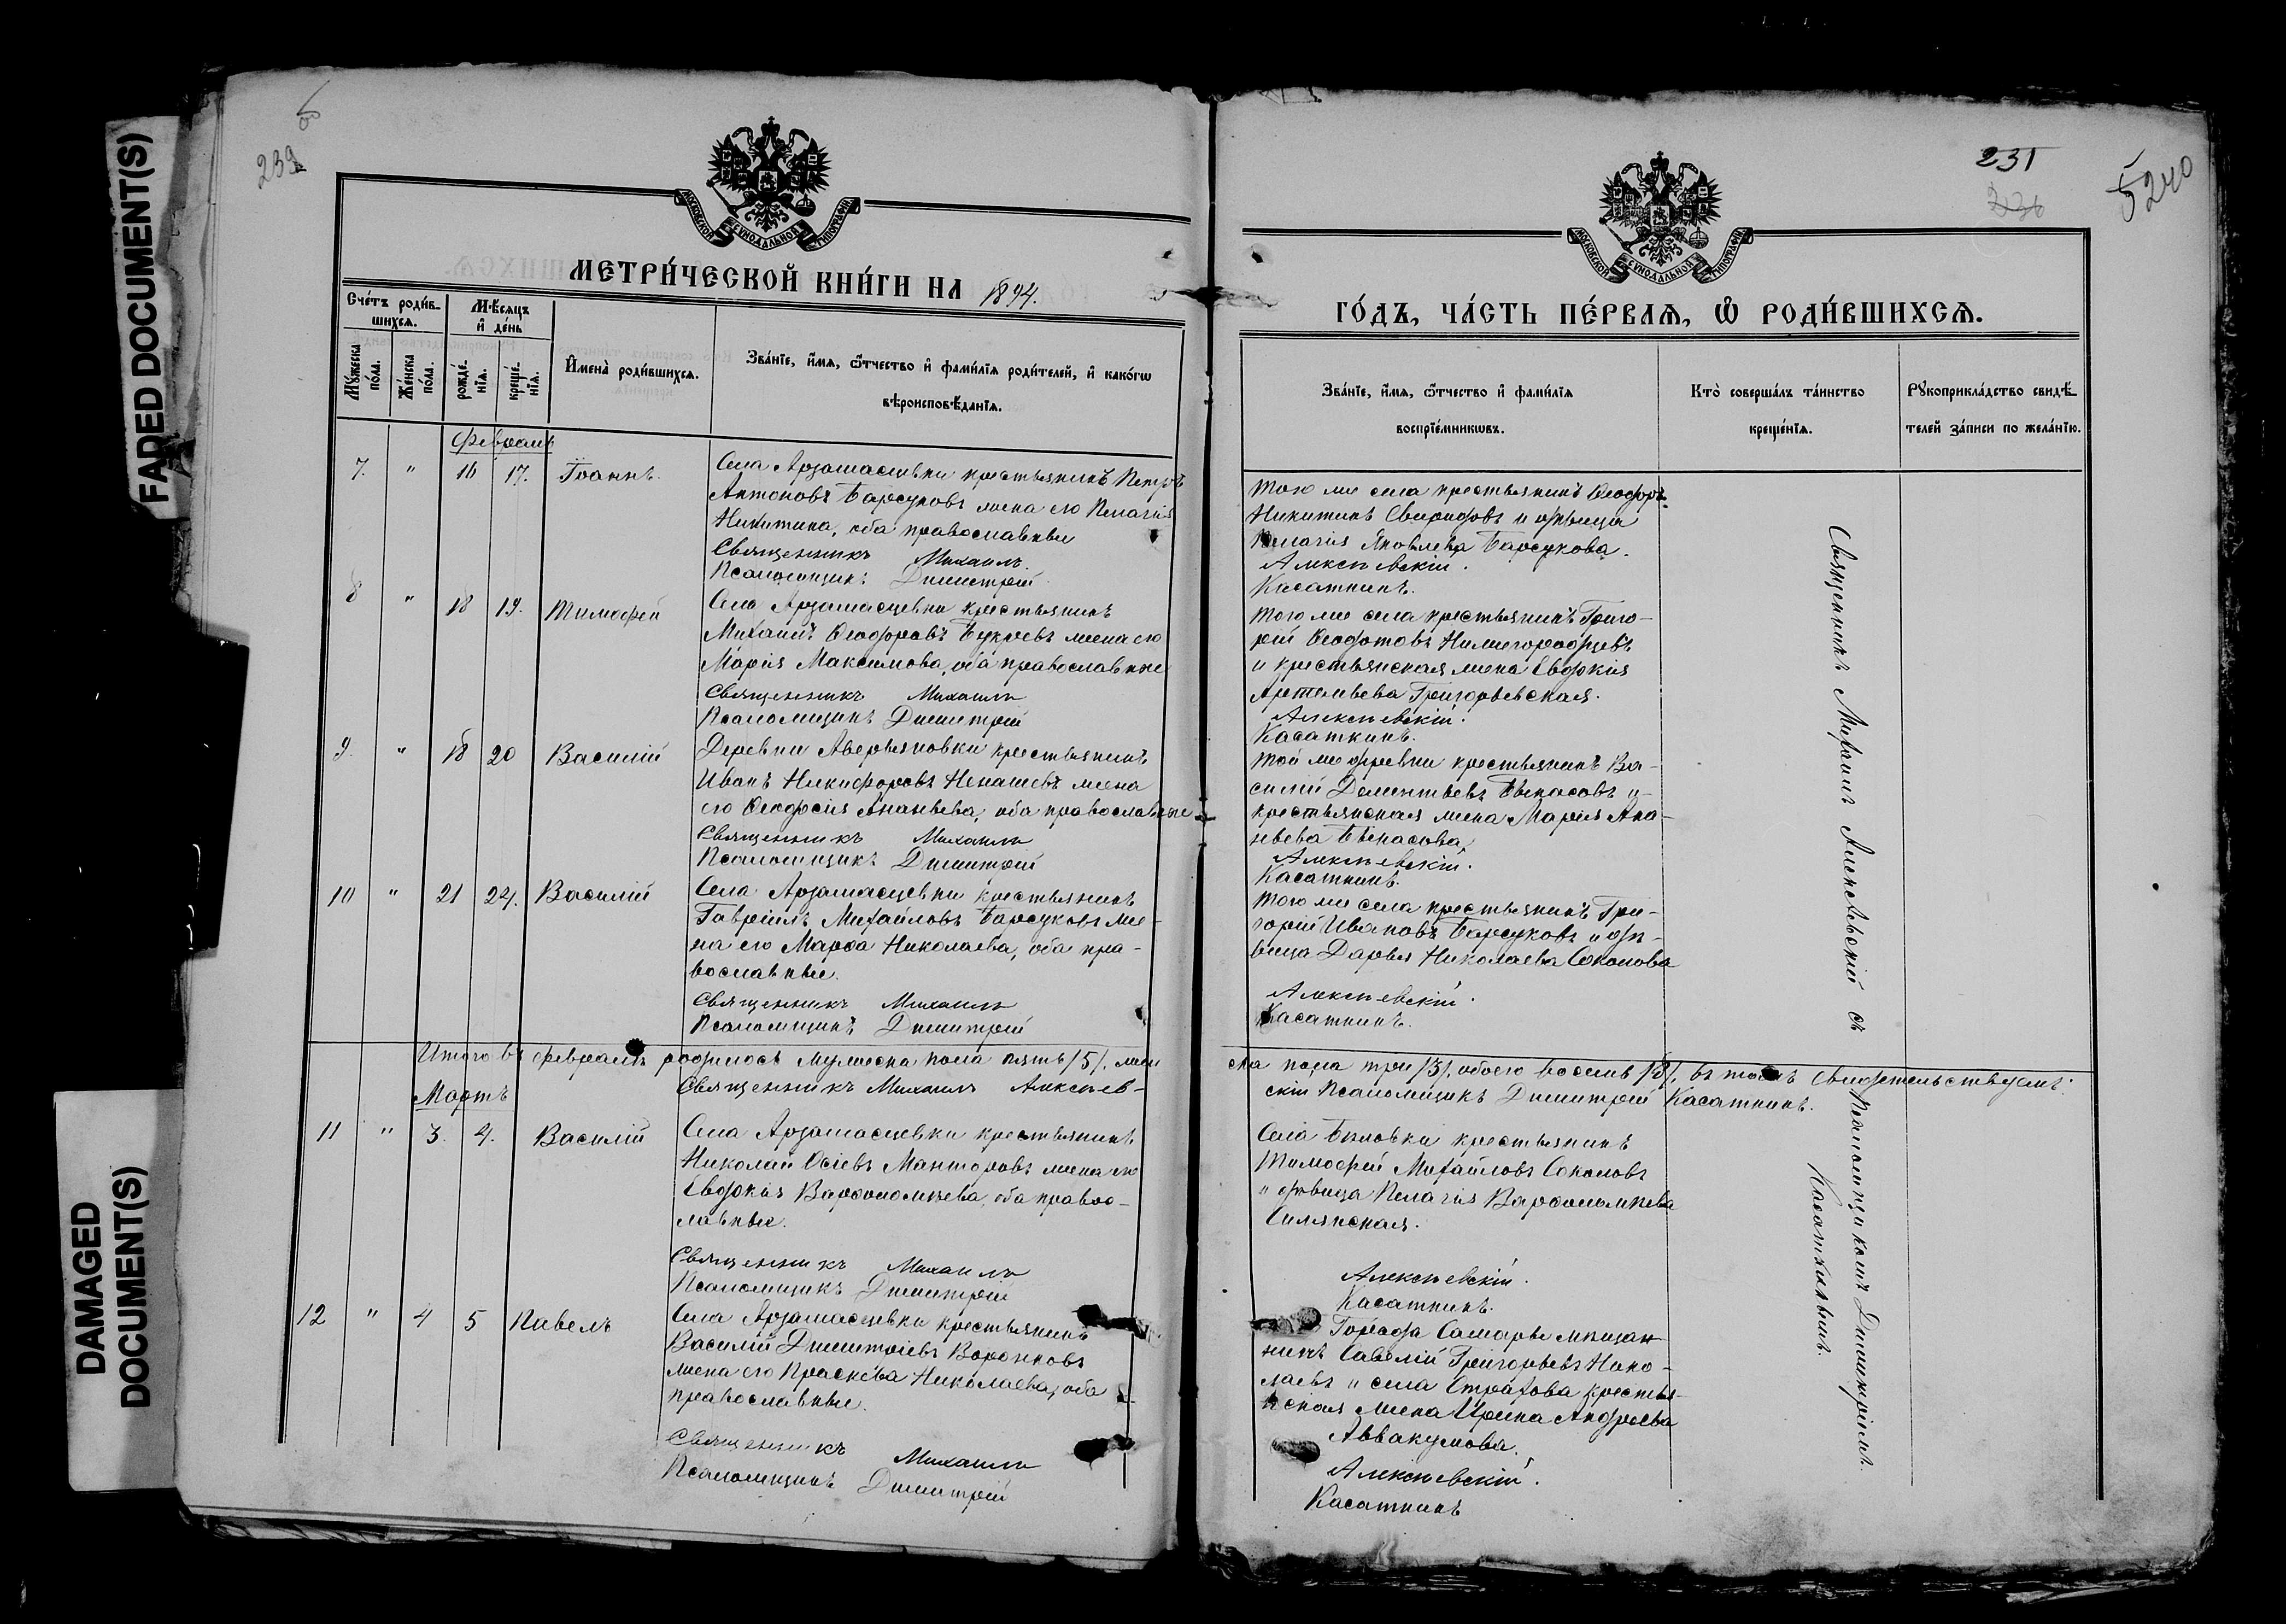 FADED DOCUMENT(S)
DAMAGED
DOCUMENT(S)
239
МОСКОВСКОЙ СѴНОДАЛЬНОЙ ТИПОГРАФІИ
МЕТРИ́ЧЕСКОЙ КНИ́ГИ НА 1894.
Сче́тъ роди́в-
шихсѧ.
Мѣ́сяцъ
и҆ де́нь
Мꙋ́жеска
по́ла.
Же́нска
по́ла.
рожде́-
нїѧ.
креще́-
нїѧ.
И҆мена̀ роди́вшихсѧ.
Зва́нїе, и҆́мѧ, ѻ҆́тчество и҆ фами́лїѧ роди́телей, и҆ како́гѡ
вѣроисповѣ́данїѧ.
Февраль
7. " 16 17. Іоаннъ.
Села Арзамасцевки крестьянинъ Петръ
Антоновъ Барсуковъ жена его Пелагія
Никитина, оба православные
Священникъ Михаилъ
Псаломщикъ Димитрій
8 " 18 19. Тимофей
Села Арзамасцевки крестьянинъ
Михаилъ Ѳеодоровъ Букоевъ жена его
Марія Максимова, оба православные
Священникъ Михаилъ
Псаломщикъ Димитрій
9. " 18 20 Василій
Деревни Аверьяновки крестьянинъ
Иванъ Никифоровъ Ненашевъ жена
его Ѳеодосія Ананьева, оба православные
Священникъ Михаилъ
Псаломщикъ Димитрій
10 " 21 24. Василій
Села Арзамасцевки крестьянинъ
Гавріилъ Михайловъ Барсуковъ же-
на его Марѳа Николаева, оба пра-
вославные.
Священникъ Михаилъ
Псаломщикъ Димитрій
Итого въ февралѣ родилось мужеска пола пять /5/. жен
Мартъ
Священникъ Михаилъ Алексѣев-
11 " 3. 4. Василій
Села Арзамасцевки крестьянинъ
Николай Осіевъ Манторовъ жена его
Евдокія Варѳоломѣева, оба правос-
лавные.
Священникъ Михаилъ
Псаломщикъ Димитрій
12 " 4 5 Павелъ
Села Арзамасцевки крестьянинъ
Василій Димитріевъ Воронковъ
жена его Праскева Николаева, оба
православные.
Священникъ Михаилъ
Псаломщикъ Димитрій
231
240
МОСКОВСКОЙ СѴНОДАЛЬНОЙ ТИПОГРАФІИ
ГО́ДЪ, ЧА́СТЬ ПЕ́РВАѦ, Ѡ҆ РОДИ́ВШИХСѦ.
Зва́нїе, и҆́мѧ, ѻ҆́тчество и҆ фами́лїѧ
воспрїе́мникѡвъ.
Кто̀ соверша́лъ та́инство
креще́нїѧ.
Рꙋкоприкла́дство свидѣ́-
телей за́писи по жела́нїю.
того же села крестьянинъ Ѳеодоръ
Никитинъ Свиридовъ и дѣвица
Пелагія Яковлева Барсукова.
Алексѣевскій.
Касаткинъ.
того же села крестьянинъ Григо-
рій Ѳеодотовъ Нижегородцевъ
и крестьянская жена Евдокія
Артемьева Григорьевская.
Алексѣевскій.
Касаткинъ.
той же деревни крестьянинъ Ва-
силій Дементьевъ Бѣкасовъ и
крестьянская жена Марія Ана-
ньева Бѣкасова.
Алексѣевскій.
Касаткинъ.
того же села крестьянинъ Гри-
горій Ивановъ Барсуковъ и дѣ-
вица Дарья Николаева Соколова
Алексѣевскій.
Касаткинъ.
ска пола три /3/. обоего восемь /8/, въ томъ свидѣтельствуемъ:
скій Псаломщикъ Димитрій Касаткинъ.
Села Бѣловки крестьянинъ
Тимофей Михайловъ Соколовъ
и дѣвица Пелагія Варѳоломѣева
Симянская.
Алексѣевскій.
Касаткинъ.
Города Самары мѣщан-
нинъ Савелій Григорьевъ Нико-
лаевъ и села Страхова крестья-
нская жена Ирина Андреева
Аввакумова.
Алексѣевскій.
Касаткинъ
Священникъ Михаилъ Алексѣевскій съ
Псаломщикомъ Димитріемъ
Касаткинымъ.